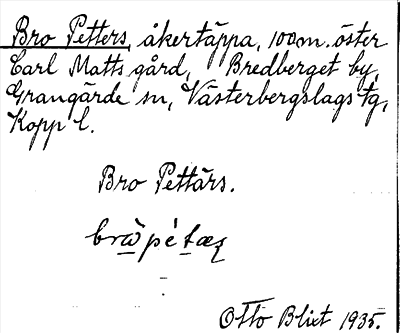 Bro Petters, åkertäppa, 100 m. öster
Carl Matts gård, Bredberget by,
Grangärde sn, Västerbergslags tg,
Kopp l.
Bro Pettärs.
Otto Blixt 1935.